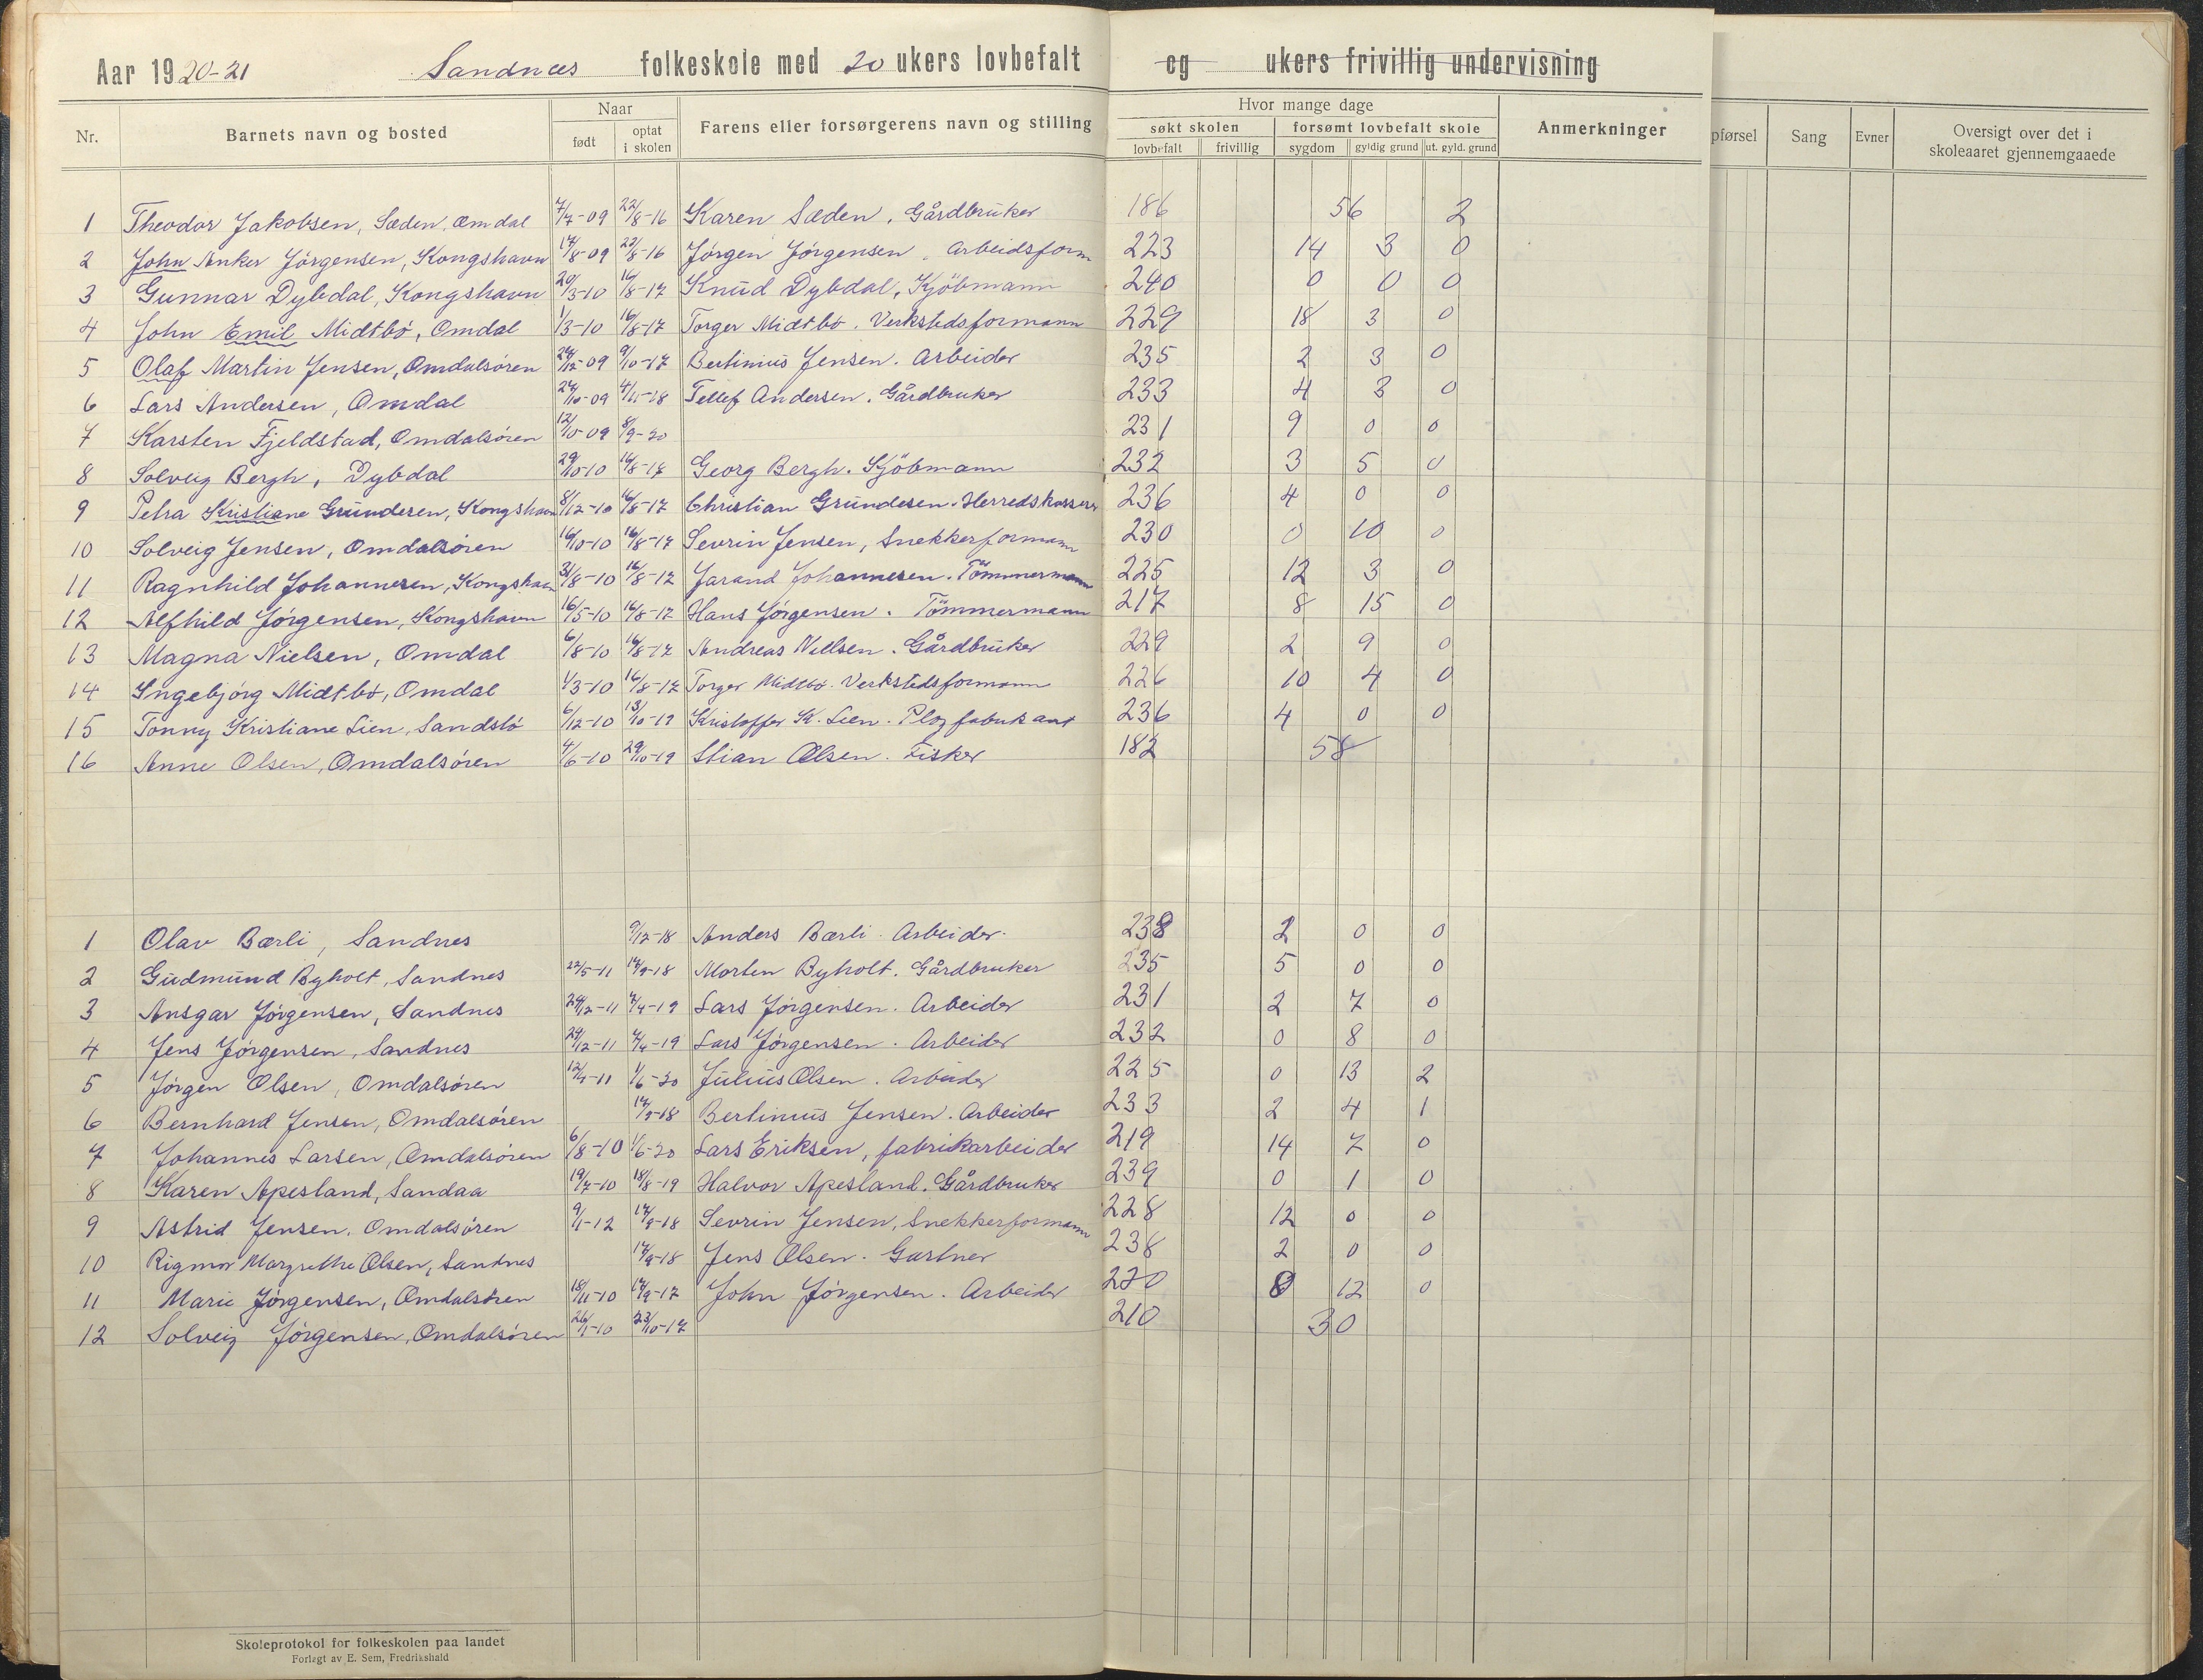 Aar 1920-21 Sandnæs folkeskole med 20 ukers lovbefalt og ukers frivillig undervisning
Nr. Barnets navn og bosted Naar født optat i skolen Farens eller forsørgerens navn og stilling Hvor mange dage søkt skolen lovbefalt frivillig forsømt lovbefalt skole sygdom gyldig grund ut. gyld. grund Anmerkninger pførsel Sang Evner Oversigt over det i skoleaaret gjennemgaaede
1 Theodor Jakobsen, Sæden, Omdal 7/7-09 22/8-16 Karen Sæden. Gårdbruker 186 56 2
2 John Anker Jörgensen, Kongshavn 17/8-09 22/8-16 Jörgen Jörgensen. Arbeidsform 223 14 3 0
3 Gunnar Dybdal, Kongshavn 20/3-10 16/8-17 Knud Dybdal, Kjöbmann 240 0 0 0
4 John Emil Midtbö, Omdal 1/3-10 16/8-17 Torger Midtbö. Verkstedsformann 229 18 3 0
5 Olaf Martin Jensen, Omdalsören 24/12-09 9/10-17 Bertinius Jensen. Arbeider 235 2 3 0
6 Lars Andersen, Omdal 24/10-09 4/11-18 Tellef Andersen. Gårdbruker 233 4 3 0
7 Karsten Fjeldstad, Omdalsören 12/10-09 8/9-20 231 9 0 0
8 Solveig Bergh, Dybdal 29/10-10 16/8-17 Georg Bergh. Kjöbmann 232 3 5 0
9 Petra Kristiane Grundesen, Kongshavn 8/12-10 16/8-17 Christian Grundesen. Herredskasserer 236 4 0 0
10 Solveig Jensen, Omdalsören 16/10-10 16/8-17 Sevrin Jensen, Snekkerformann 230 0 10 0
11 Ragnhild Johannesen, Kongshavn 31/8-10 16/8-17 Jarand Johannesen. Tömmermann 225 12 3 0
12 Alfhild Jörgensen, Kongshavn 16/5-10 16/8-17 Hans Jörgensen. Tömmermann 217 8 15 0
13 Magna Nielsen, Omdal 6/8-10 16/8-17 Andreas Nielsen. Gårdbruker 229 2 9 0
14 Ingebjörg Midtbö, Omdal 1/3-10 16/8-17 Torger Midtbö. Verkstedsformann 226 10 4 0
15 Tonny Kristiane Lien, Sandstö 6/12-10 13/10-19 Kristoffer K. Lien. Plogfabrikant 236 4 0 0
16 Anne Olsen, Omdalsören 4/6-10 29/10-19 Stian Olsen. Fisker 182 58
1 Olav Bærli, Sandnes 9/12-18 Anders Bærli. Arbeider. 238 2 0 0
2 Gudmund Byholt, Sandnes 22/5-11 17/9-18 Morten Byholt. Gårdbruker 235 5 0 0
3 Ansgar Jörgensen, Sandnes 24/12-11 7/4-19 Lars Jörgensen. Arbeider 231 2 7 0
4 Jens Jörgensen, Sandnes 24/12-11 7/4-19 Lars Jörgensen. Arbeider 232 0 8 0
5 Jörgen Olsen, Omdalsören 12/7-11 1/6-20 Julius Olsen. Arbeider 225 0 13 2
6 Bernhard Jensen, Omdalsören 17/9-18 Bertinius Jensen. Arbeider 233 2 4 1
7 Johannes Larsen, Omdalsören 6/8-10 1/6-20 Lars Eriksen, fabrikarbeider 219 14 7 0
8 Karen Apesland, Sandaa 19/7-10 18/8-19 Halvor Apesland. Gårdbruker 239 0 1 0
9 Astrid Jensen. Omdalsören 9/1-12 17/9-18 Sevrin Jensen, Snekkerformann 228 12 0 0
10 Rigmor Margrethe Olsen, Sandnes 17/9-18 Jens Olsen. Gartner 238 2 0 0
11 Marie Jörgensen, Omdalsören 18/11-10 17/9-17 John Jörgensen. Arbeider 220 8 12 0
12 Solveig Jörgensen, Omdalsören 26/1-10 23/10-17 210 30
Skoleprotokol for folkeskolen paa landet
Forlagt av E. Sem, Fredrikshald